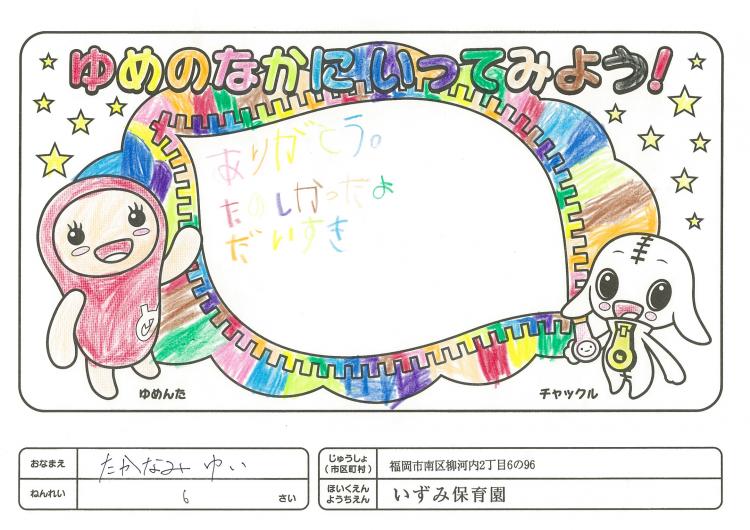 ゆめのなかにいってみよう!
ありがとう。
たのしかったよ
だいすき
ゆめんた
チャックル
おなまえ たかなみ ゆい
ねんれい 6 さい
じゅうしょ(市区町村) 福岡市南区柳河内2丁目6の96
ほいくえん ようちえん いずみ保育園